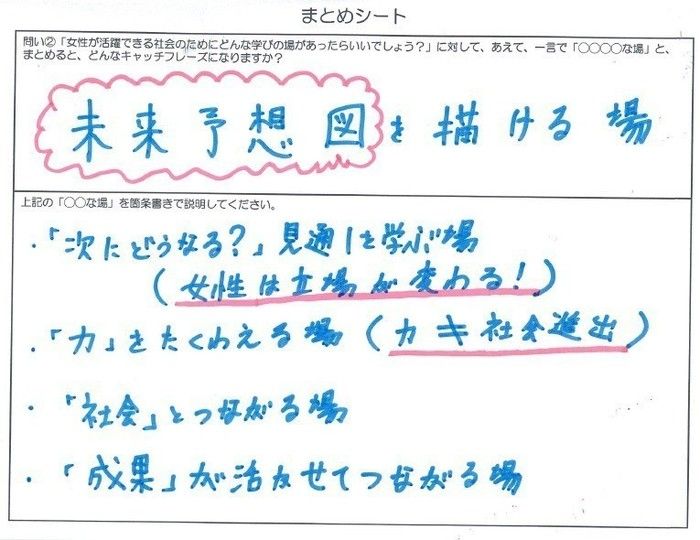 まとめシート
問い②「女性が活躍できる社会のためにどんな学びの場があったらいいでしょう？」に対して、あえて、一言で「○○○○な場」と、
まとめると、どんなキャッチフレーズになりますか？
未来予想図を描ける場
上記の「○○な場」を箇条書きで説明してください。
・「次にどうなる？」見通しを学ぶ場
（女性は立場が変わる！）
・「力」をたくわえる場（力≠社会進出）
・「社会」とつながる場
・「成果」が活かせてつながる場